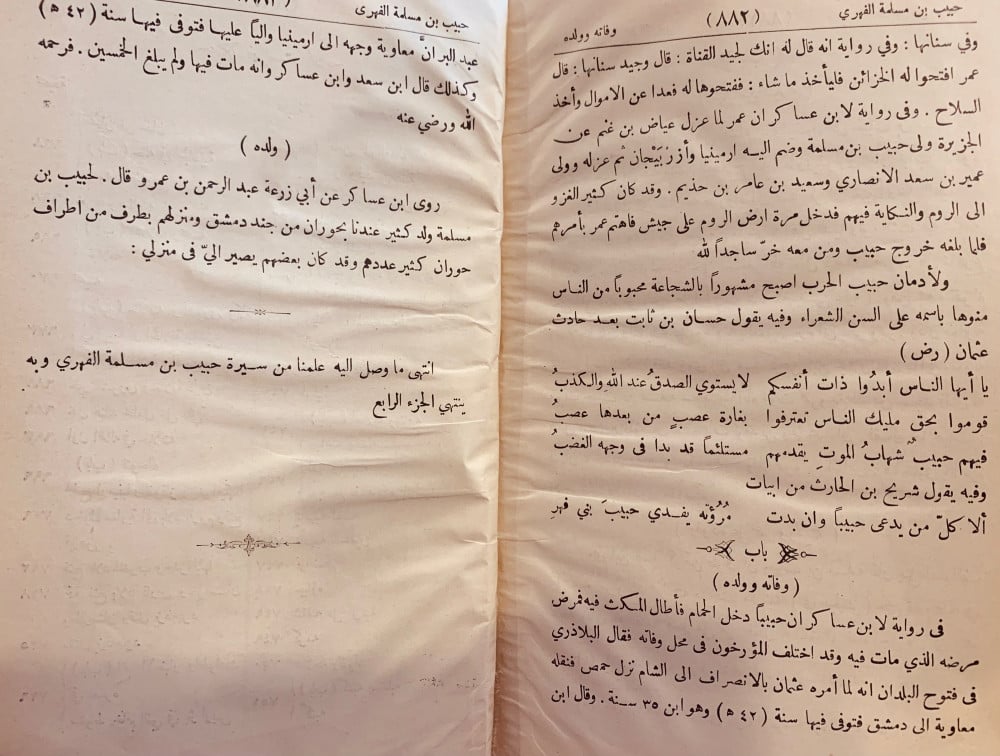 حبيب بن مسلمة الفهري
(٨٨٢)
وفاته وولده
وفي سنانها : وفي رواية انه قال له انك لجيد القناة : قال وجيد سنانها : قال
عمر افتحوا له الخزائن فليأخذ ما شاء : ففتحوها له فعدا عن الاموال وأخذ
السلاح . وفى رواية لابن عساكر ان عمر لما عزل عياض بن غنم عن
الجزيرة ولى حبيب بن مسلمة وضم اليه ارمينيا وأزربيجان ثم عزله وولى
عمير بن سعد الانصاري وسعيد بن عامر بن حذيم . وقد كان كثير الغزو
الى الروم والنكاية فيهم فدخل مرة ارض الروم على جيش فاهتم عمر بأمرهم
فلما بلغه خروج حبيب ومن معه خرّ ساجداً لله
ولأدمان حبيب الحرب اصبح مشهوراً بالشجاعة محبوباً من الناس
منوها باسمه على السن الشعراء وفيه يقول حسان بن ثابت بعد حادث
عثمان (رض)
يا أيها الناس أبدُوا ذات أنفسكم لا يستوي الصدقُ عند اللهِ والكذبُ
قوموا بحق مليك الناس تعترفوا بغارة عصبٍ من بعدها عصبُ
فيهم حبيبٌ شهابُ الموتِ يقدمهم مستلئماً قد بدا في وجهه الغضبُ
وفيه يقول شريح بن الحارث من ابيات
ألا كلّ من يدعى حبيباً وان بدت مُرُؤته يفدي حبيبَ بني فهرِ
باب
(وفاته وولده)
فى رواية لابن عساكر ان حبيباً دخل الحمام فأطال المكث فيه فمرض
مرضه الذي مات فيه وقد اختلف المؤرخون فى محل وفاته فقال البلاذري
فى فتوح البلدان انه لما أمره عثمان بالانصراف الى الشام نزل حمص فنقله
معاوية الى دمشق فتوفى فيها سنة (٤٢ ه) وهو ابن ٣٥ سنة . وقال ابن
حبيب بن مسلمة الفهرى
عبد البر انَّ معاوية وجهه الى ارمينيا والياً عليها فتوفى فيها سنة (٤٢ ه)
وكذلك قال ابن سعد وابن عساكر وانه مات فيها ولم يبلغ الخمسين . فرحمه
الله ورضي عنه
(ولده)
روى ابن عساكر عن أبي زرعة عبد الرحمن بن عمرو قال . لحبيب بن
مسلمة ولد كثير عندنا بحوران من جند دمشق ومنزلهم بطرف من اطراف
حوران كثير عددهم وقد كان بعضهم يصير اليّ فى منزلي :
انتهى ما وصل اليه علمنا من سيرة حبيب بن مسلمة الفهري وبه
ينتهي الجزء الرابع